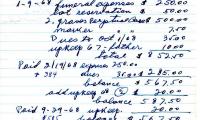 1-9-68 funeral expenses $ 250.00
lot reservation $ 50.00
2. graves perpetual care $ 500.00
marker $ 7.50
Dues to Oct 1/68 35.00
upkeep 67- father 10.00
Total $ 852.50
Paid 2/19/68 expenses 250.00
# 384 dues 35.00 $ 285.00
balance $ 567.50
add upkeep of 20.00
balance 587.50
Paid 9-29-68 upkeep 20.00
balance $ 567.50